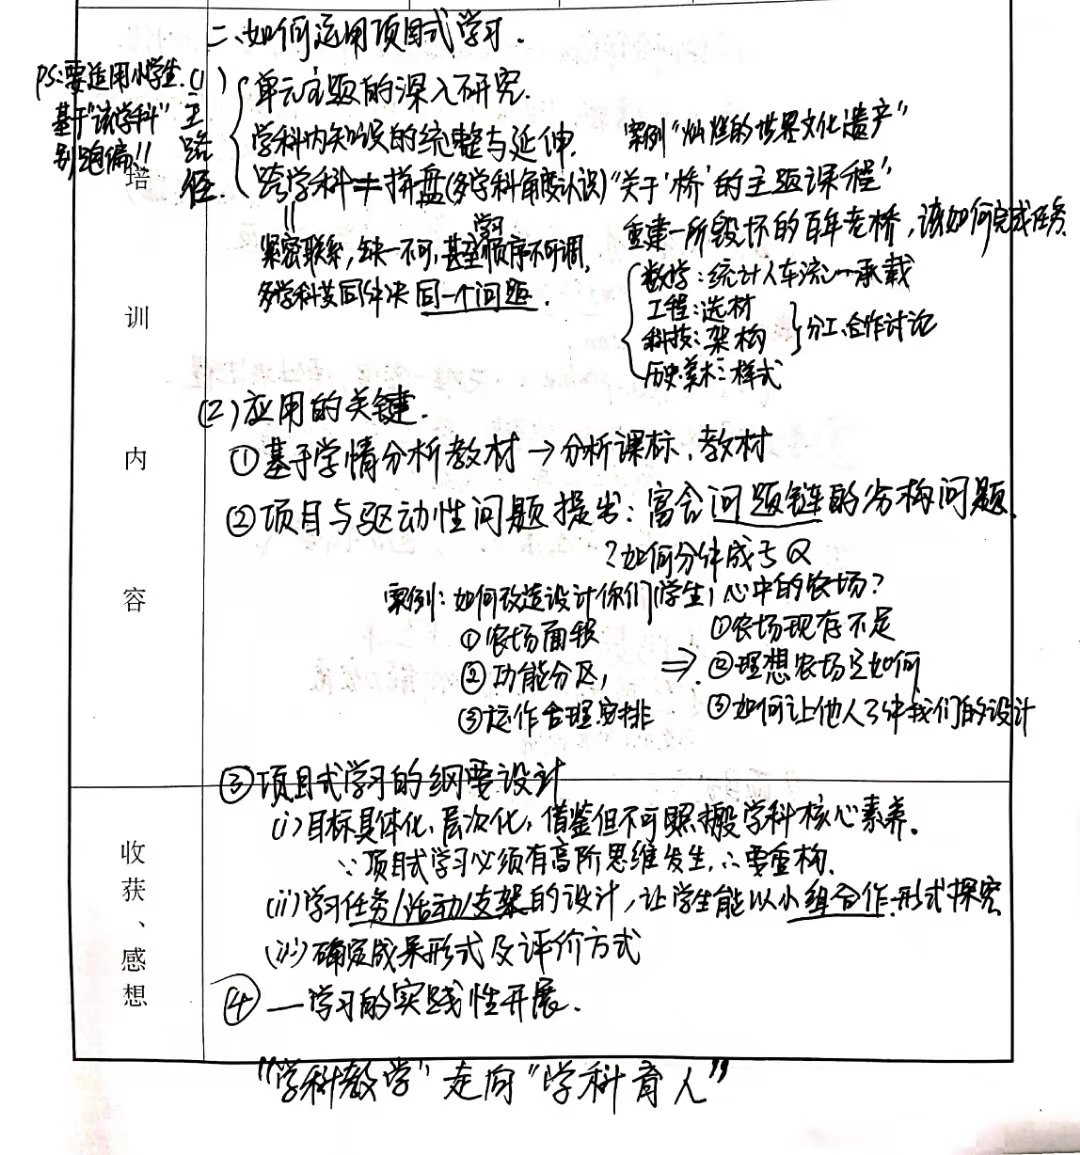 二、如何运用项目式学习.
PS:要适用小学生.
基于“该学科”
别跑偏!!
(1)主路径.
单元主题的深入研究.
学科内知识的统整与延伸.
案例“灿烂的世界文化遗产”
跨学科≠拼盘(多学科角度认识)
“关于‘桥’的主题课程”
紧密联系,缺一不可,甚至学习顺序不可调.
多学科共同解决同一个问题.
重建一所毁坏的百年老桥,该如何完成任务
数学:统计人车流一承载
工程:选材
科技:架构
分工、合作讨论
历史.美术:样式
(2)应用的关键.
①基于学情分析教材→分析课标、教材
②项目与驱动性问题提出:富含问题链的劣构问题.
?如何分解成子Q
案例:如何改造设计你们(学生)心中的农场?
①农场面积
②功能分区,
③运作合理安排
⇒
①农场现存不足
②理想农场是如何
③如何让他人了解我们的设计
③项目式学习的纲要设计
(i)目标具体化,层次化,借鉴但不可照搬学科核心素养.
∵项目式学习必须有高阶思维发生,∴要重构.
(ii)学习任务/活动/支架的设计,让学生能以小组合作.形式探究
(iii)确定成果形式及评价方式
④—学习的实践性开展.
“学科教学”走向“学科育人”
培
训
内
容
收
获
、
感
想